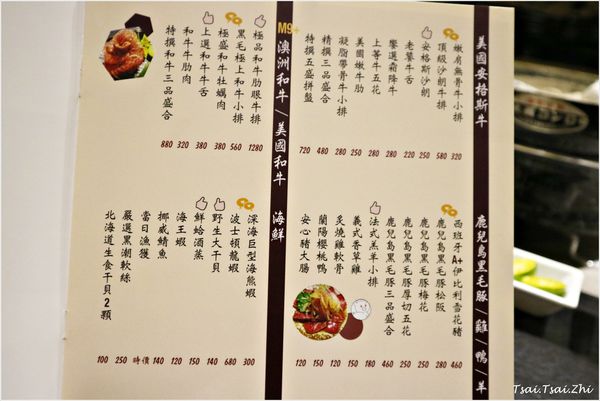 美國安格斯牛
嫩肩無骨牛小排 320
頂級沙朗牛排 580
安格斯沙朗 250
老饕牛舌 220
饗選霜降牛 220
上等牛五花 180
美國嫩牛肋 250
凝脂帶骨牛小排 280
精撰三品盛合 480
特撰五盛拼盤 720
M9+ 澳洲和牛/美國和牛
極品和牛肋眼牛排 1280
黑毛極上和牛小排 560
極盛和牛牡蠣肉 380
上選和牛牛舌 380
和牛牛肋肉 320
特撰和牛三品盛合 880
鹿兒島黑毛豚/雞/鴨/羊
西班牙A+伊比利雪花豬 460
鹿兒島黑毛豚松阪 280
鹿兒島黑毛豚梅花 250
鹿兒島黑毛豚厚切五花 250
鹿兒島黑毛豚三品盛合 460
法式羔羊小排 180
義式香草雞 150
炙燒雞軟骨 120
蘭陽櫻桃鴨 150
安心豬大腸 120
海鮮
深海巨型海熊蝦 300
波士頓龍蝦 680
野生大干貝 140
鮮蛤酒蒸 150
海王蝦 120
挪威鯖魚 140
當日漁獲 時價
嚴選黑潮軟絲 250
北海道生食干貝2顆 100
Tsai.Tsai.Zhi